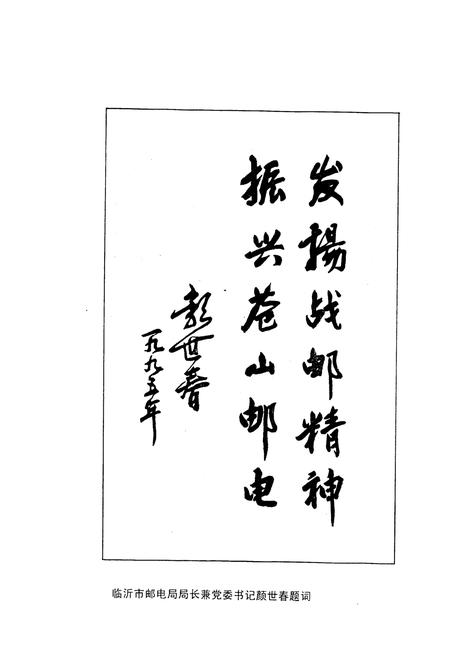 发揚战邮精神
振兴苍山邮电
颜世春
一九九五年
临沂市邮电局局长兼党委书记颜世春题词